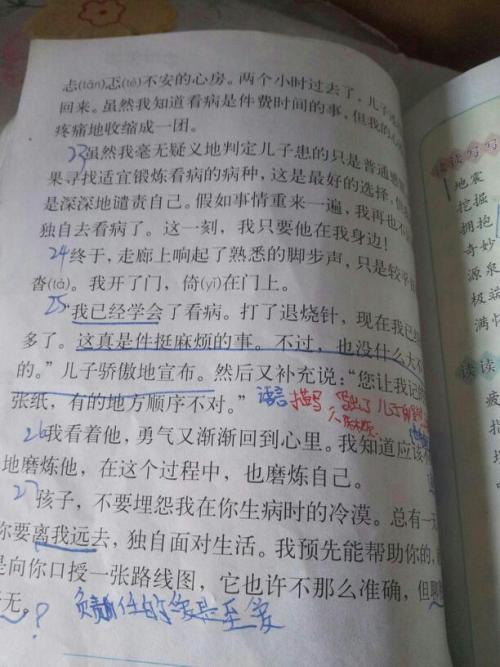 志(tǎn)忑(tè)不安的心房。两个小时过去了，儿子
回来。虽然我知道看病是件费时间的事，但我的心
疼痛地收缩成一团。
23虽然我毫无疑义地判定儿子患的只是普通感
果寻找适宜锻炼看病的病种，这是最好的选择，但我
是深深地谴责自己。假如事情重来一遍，我再也不
独自去看病了。这一刻，我只要他在我身边！
24终于，走廊上响起了熟悉的脚步声，只是较平
沓(tà)。我开了门，倚(yǐ)在门上。
25“我已经学会了看病。打了退烧针，现在我已经
多了。这真是件挺麻烦的事。不过，也没什么大不
的。”儿子骄傲地宣布。然后又补充说：“您让我记的
张纸，有的地方顺序不对。”
语言描写 写出了儿子
不怕麻烦
26我看着他，勇气又渐渐回到心里。我知道应该
地磨炼他，在这个过程中，也磨炼自己。
27孩子，不要埋怨我在你生病时的冷漠。总有一天
你要离我远去，独自面对生活。我预先能帮助你的，
是向你口授一张路线图，它也许不那么准确，但聊
无。？
负责任的爱是至爱
读读写写
地震
挖掘
拥抱
奇妙
源泉
极
满怀
读读
疲